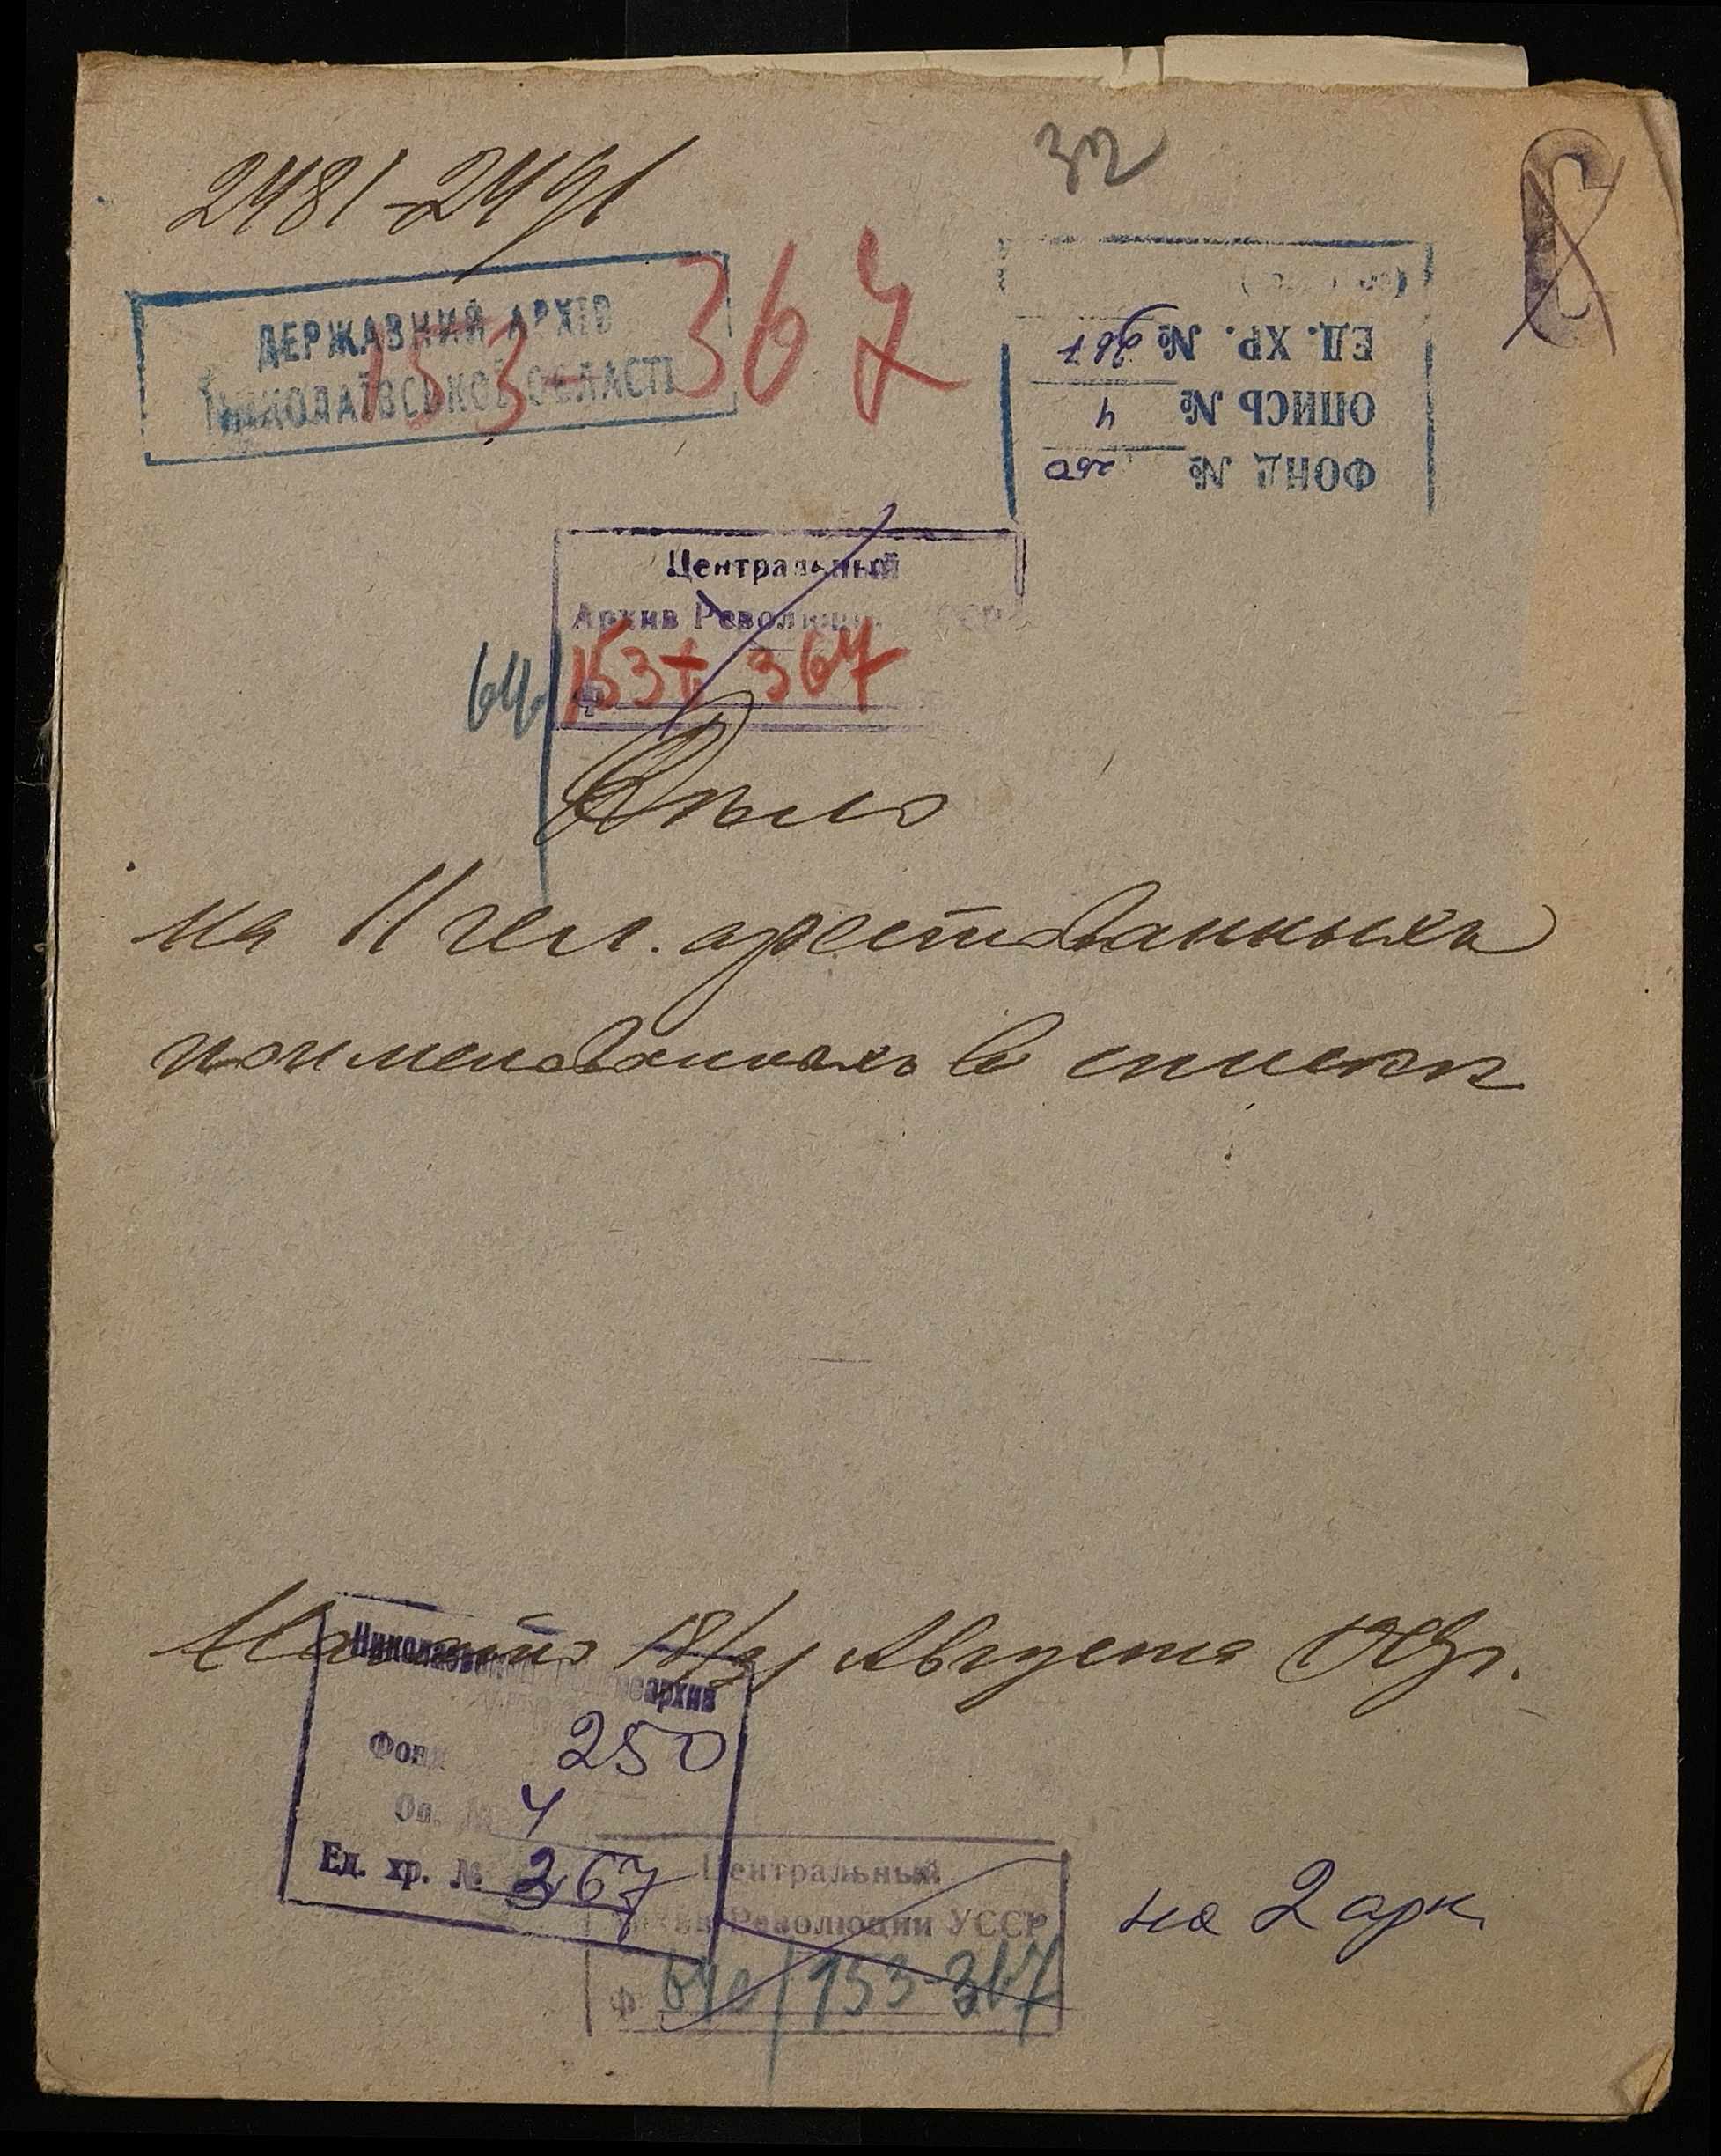 2481-2491
32
ДЕРЖАВНИЙ АРХІВ
МИКОЛАЇВСЬКОЇ ОБЛАСТІ
153- 367
ФОНД № 250
ОПИСЬ № 4
ЕД. ХР. № 367
Центральный
Архив Революции УССР
64
153 + 367
Ф
Дѣло
на 11 чел. арестованныхъ
поименованныхъ в списке
Начато 18/31 Августа 1919г.
Николаевский Госархив
Фонд 250
Оп. № 4
Ед. хр. № 367
Центральный
Архив Революции УССР
Ф 640/153-367
на 2 арк.